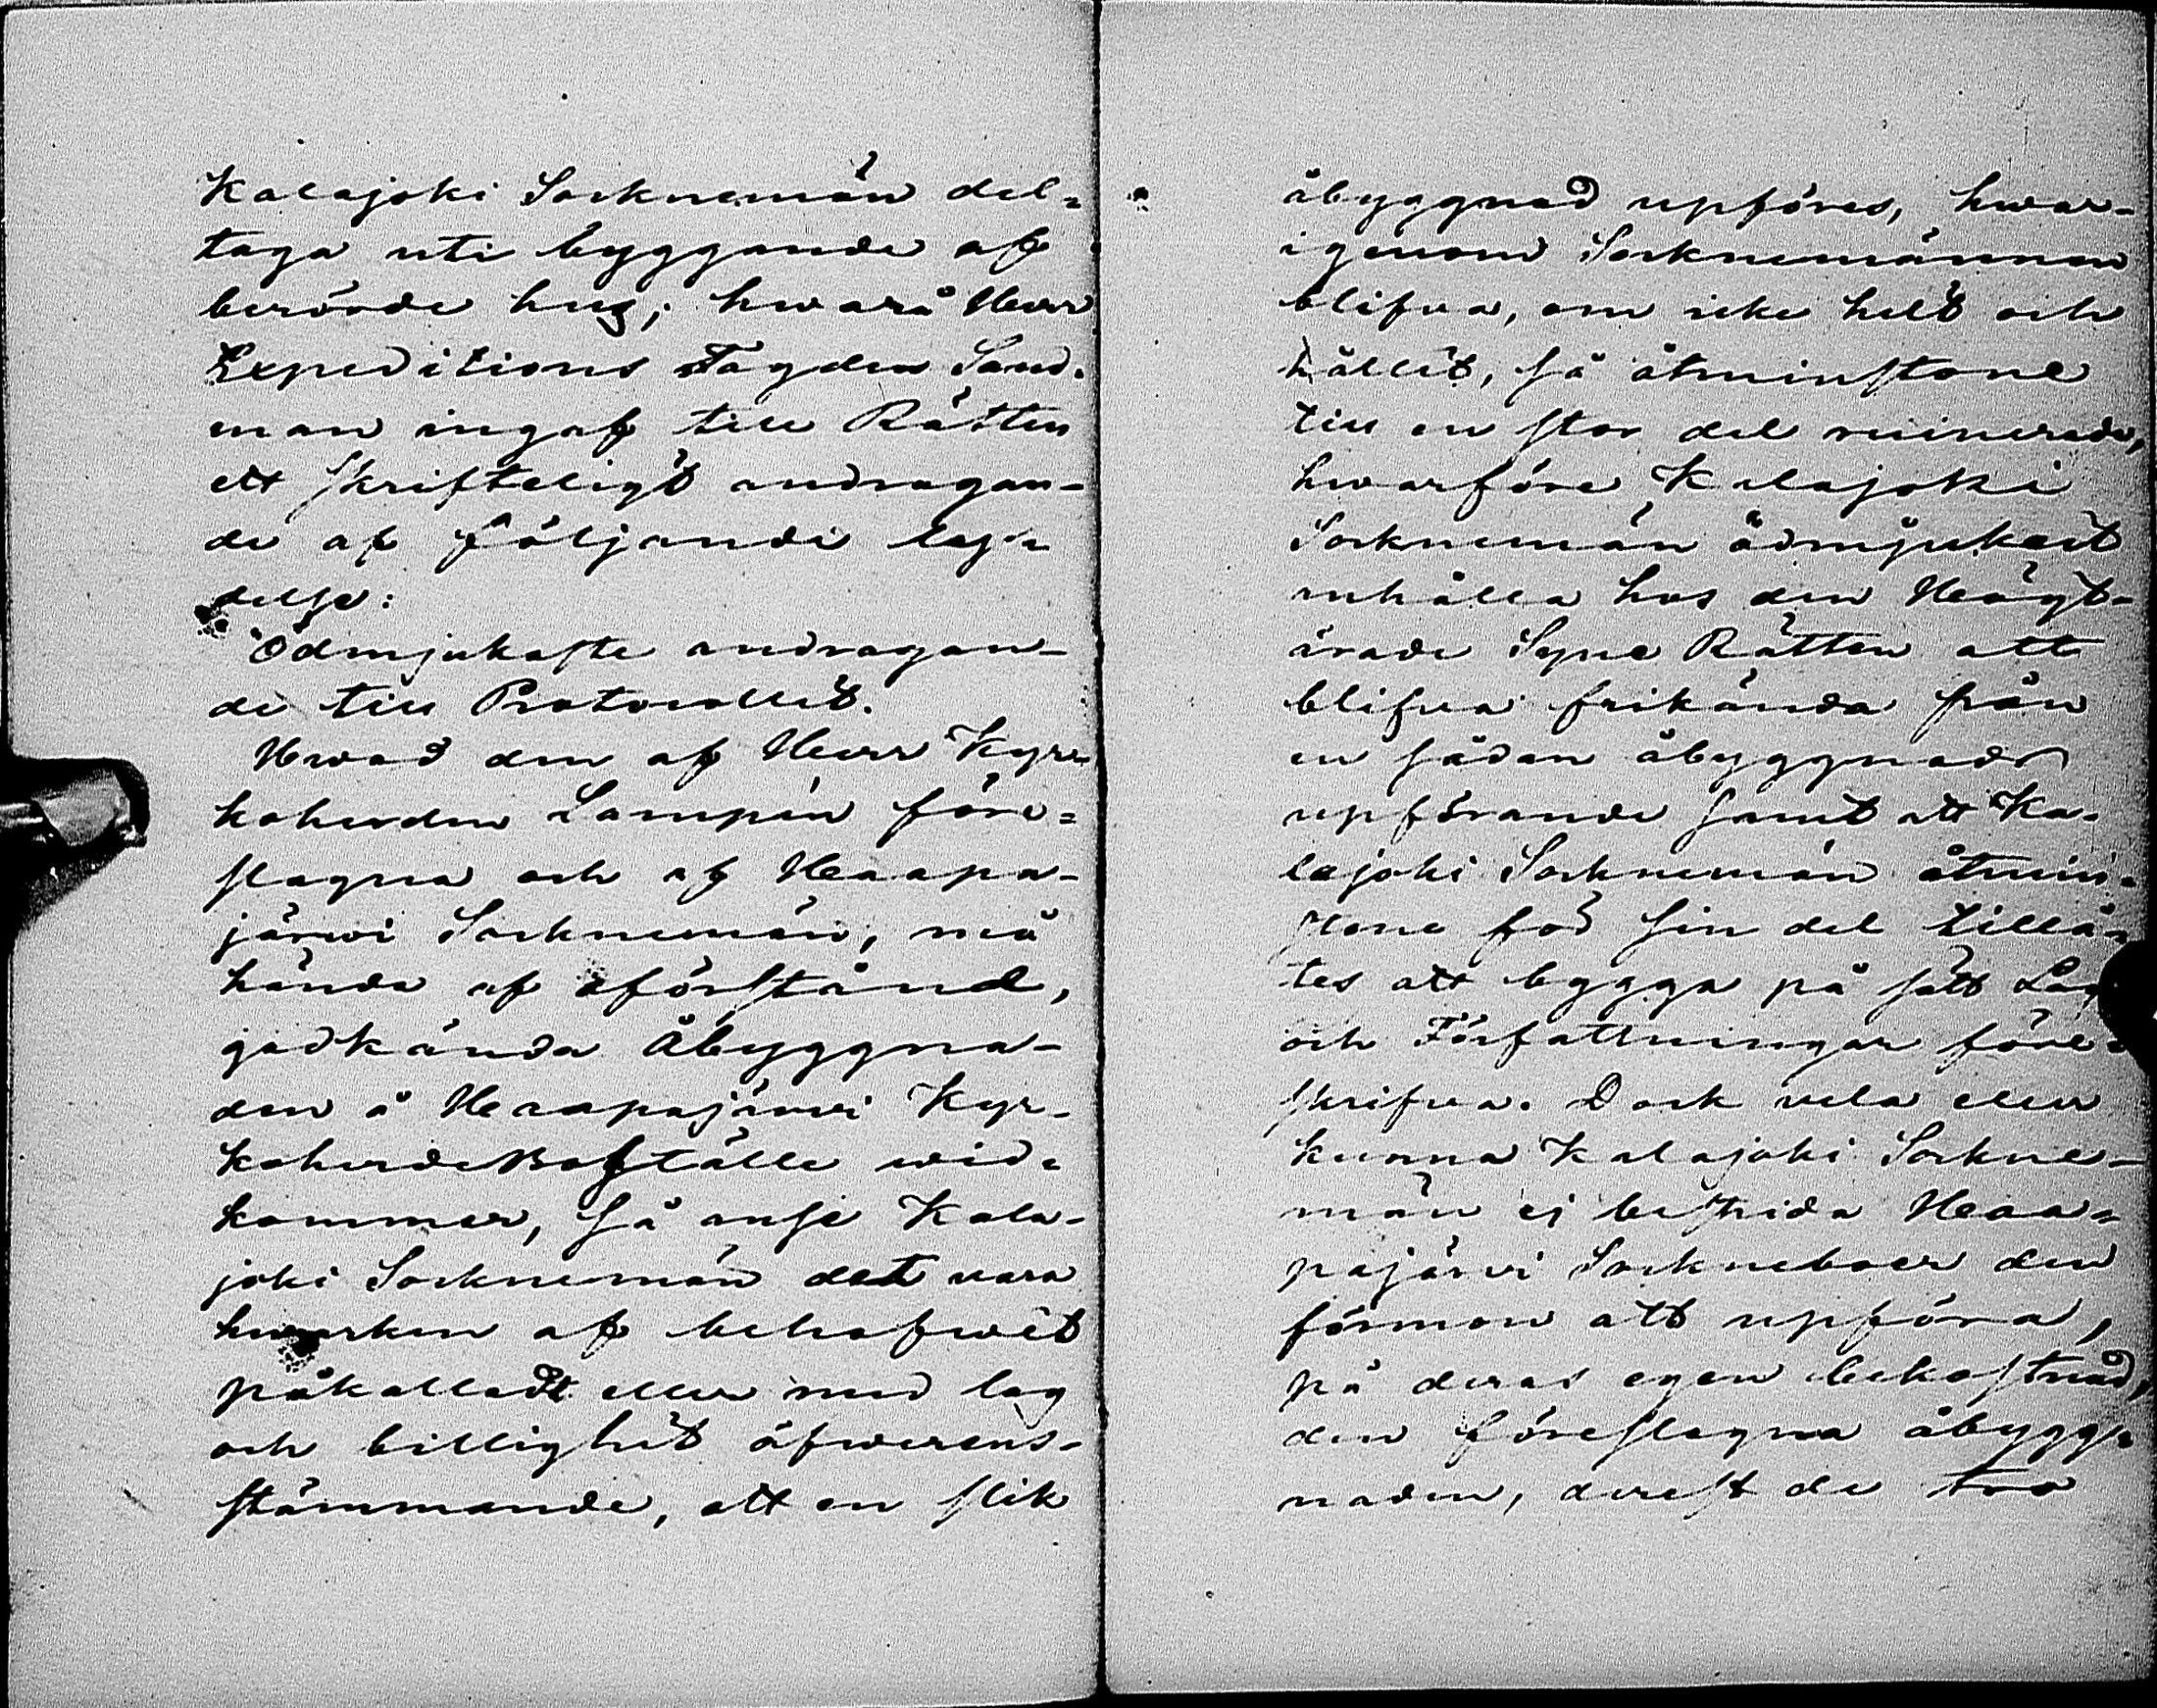 Kalajoki Socknemän del=
taga uti byggande af
berörde hus; hwarå Herr
Expeditions Fogden Sand-
man ingaf till Rätten
ett skrifteligt andragan-
de af följande ly-
delse:
Ödmjukaste andragan-
de till Protocollet.
Hwad den af Herr Kyr-
koherden Lampén före=
slagna och af Haapa-
järwi Socknemän, må
hända af oförstånd,
godkända Åbyggna-
den å Haapajärwi Kyr-
koherdeBoställe wid-
kommer, så anse Kala-
joki Socknemän det vara
hwarken af behofwet
påkalladt eller med lag
och billighet öfwerens-
stämmande, att en slik
åbyggnad upföres, hwar-
igenom Socknemännen
blifva, om icke helt och
hållet, så åtminstone
till en stor del ruinerade,
hwarföre Kalajoki
Socknemän ödmjukast
anhålla hos den Högt-
ärade Syne Rätten att
blifva frikända från
en sådan åbyggnads
upförande samt att Ka-
lajoki Socknemän åtmin-
stone för sin del tillå-
tes att bygga på sätt Lag
och Författningar före-
skrifva. Dock vela eller
kunna Kalajoki Sockne-
män ej bestrida Haa=
pajärvi Sockneboer den
förmon att upföra,
på deras egen bekostnad,
den föreslagna åbygg-
naden, derest de tro